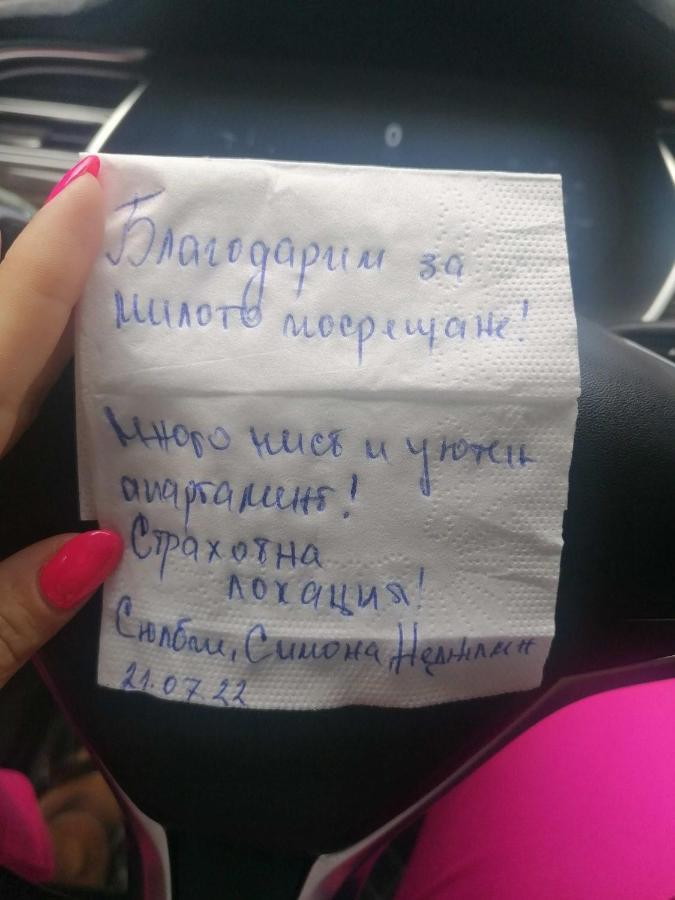 Благодарим за
милото посрещане!
Много чист и уютен
апартамент!
Страхотна
локация!
Сюлбие, Симона,
21.07.22